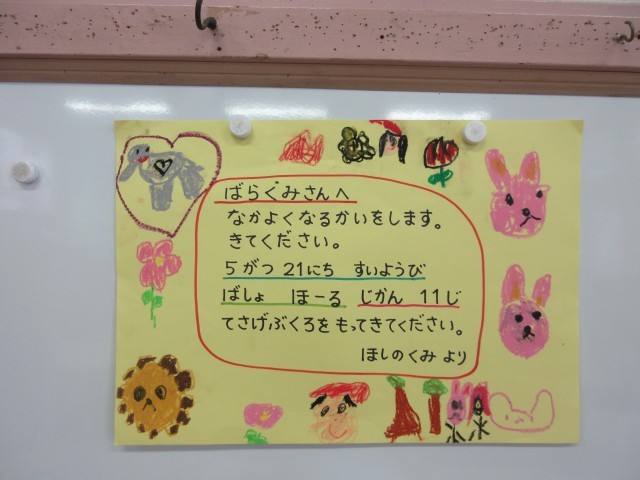 ばらぐみさんへ
なかよくなるかいをします。
きてください。
5がつ 21にち すいようび
ばしょ ほーる じかん 11じ
てさげぶくろをもってきてください。
ほしのくみ より